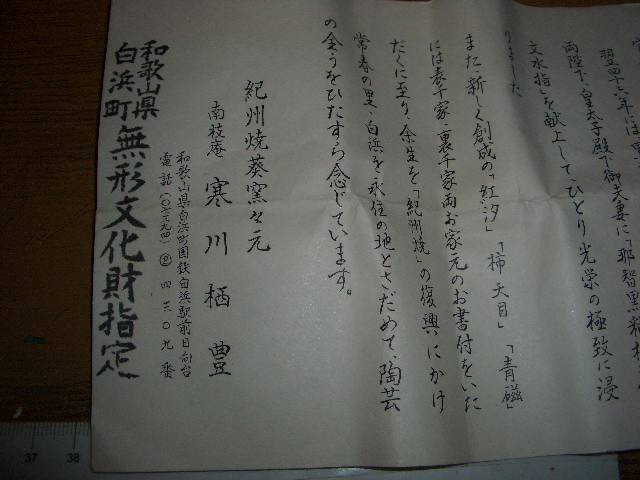 翌四十六年には
両陛下、皇太子殿下御夫妻に「那智黒釉
文水指」を献上して、ひとり光栄の極致に浸
りました。
また、新しく創成の「紅汐」「柿天目」「青磁」
には表千家・裏千家両お家元のお書付をいた
だくに至り、余生を「紀州焼」の復興にかけ
常春の里、白浜を永住の地とさだめて、陶芸
の全うをひたすら念じています。
紀州焼葵窯々元
南枝庵 寒川栖豊
和歌山県白浜町国鉄白浜駅前日向台
電話(〇七三九四)②四三〇九番
和歌山県
白浜町 無形文化財指定
37 38